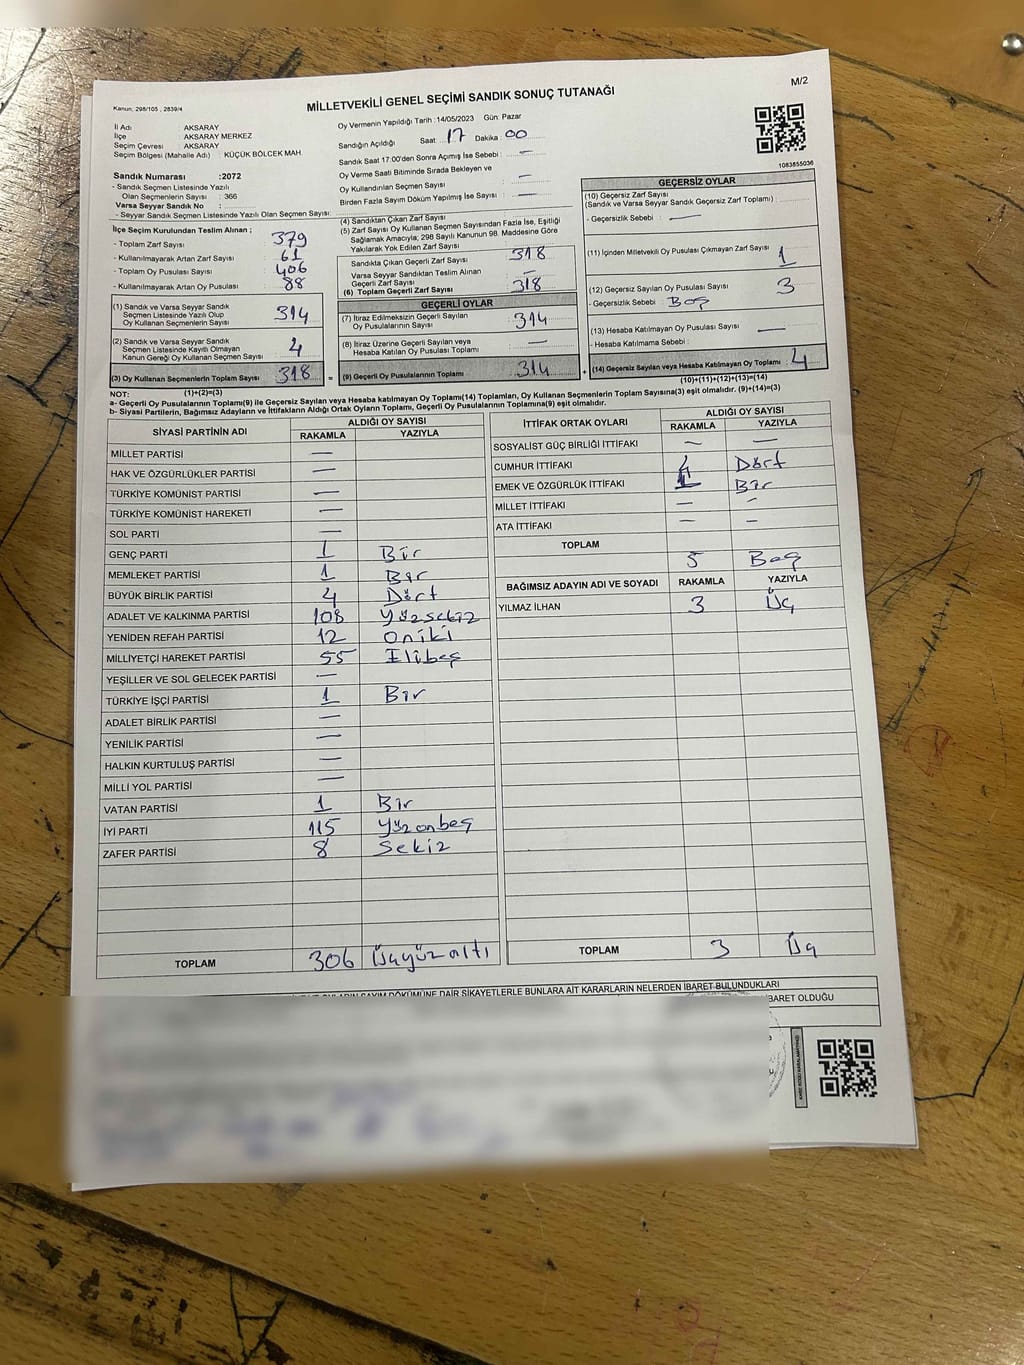 M/2
Kanun: 298/105 , 2839/4
MİLLETVEKİLİ GENEL SEÇİMİ SANDIK SONUÇ TUTANAĞI
İl Adı : AKSARAY
İlçe : AKSARAY MERKEZ
Seçim Çevresi : AKSARAY
Seçim Bölgesi (Mahalle Adı) : KÜÇÜK BÖLCEK MAH.
Sandık Numarası :2072
- Sandık Seçmen Listesinde Yazılı
Olan Seçmenlerin Sayısı : 366
Varsa Seyyar Sandık No :
- Seyyar Sandık Seçmen Listesinde Yazılı Olan Seçmen Sayısı:
İlçe Seçim Kurulundan Teslim Alınan ;
- Toplam Zarf Sayısı : 379
- Kullanılmayarak Artan Zarf Sayısı : 61
- Toplam Oy Pusulası Sayısı : 406
- Kullanılmayarak Artan Oy Pusulası : 88
(1) Sandık ve Varsa Seyyar Sandık
Seçmen Listesinde Yazılı Olup
Oy Kullanan Seçmenlerin Sayısı 314
(2) Sandık ve Varsa Seyyar Sandık
Seçmen Listesinde Kayıtlı Olmayan
Kanun Gereği Oy Kullanan Seçmen Sayısı 4
(3) Oy Kullanan Seçmenlerin Toplam Sayısı 318
(1)+(2)=(3)
Oy Vermenin Yapıldığı Tarih :14/05/2023 Gün: Pazar
Sandığın Açıldığı Saat: 17 Dakika : 00
Sandık Saat 17:00'den Sonra Açımış İse Sebebi : —
Oy Verme Saati Bitiminde Sırada Bekleyen ve
Oy Kullandırılan Seçmen Sayısı : —
Birden Fazla Sayım Döküm Yapılmış İse Sayısı : —
(4) Sandıktan Çıkan Zarf Sayısı
(5) Zarf Sayısı Oy Kullanan Seçmen Sayısından Fazla İse, Eşitliği
Sağlamak Amacıyla; 298 Sayılı Kanunun 98. Maddesine Göre
Yakılarak Yok Edilen Zarf Sayısı :
Sandıkta Çıkan Geçerli Zarf Sayısı 318
Varsa Seyyar Sandıktan Teslim Alınan
Geçerli Zarf Sayısı —
(6) Toplam Geçerli Zarf Sayısı : 318
GEÇERLİ OYLAR
(7) İtiraz Edilmeksizin Geçerli Sayılan
Oy Pusulalarının Sayısı : 314
(8) İtiraz Üzerine Geçerli Sayılan veya
Hesaba Katılan Oy Pusulası Toplamı : —
= (9) Geçerli Oy Pusulalarının Toplamı : 314
1083855036
GEÇERSİZ OYLAR
(10) Geçersiz Zarf Sayısı
(Sandık ve Varsa Seyyar Sandık Geçersiz Zarf Toplamı) :
- Geçersizlik Sebebi : —
(11) İçinden Milletvekili Oy Pusulası Çıkmayan Zarf Sayısı : 1
(12) Geçersiz Sayılan Oy Pusulası Sayısı : 3
- Geçersizlik Sebebi : Boş
(13) Hesaba Katılmayan Oy Pusulası Sayısı : —
- Hesaba Katılmama Sebebi :
+ (14) Geçersiz Sayılan veya Hesaba Katılmayan Oy Toplamı : 4
(10)+(11)+(12)+(13)=(14)
NOT:
a- Geçerli Oy Pusulasının Toplamı(9) ile Geçersiz veya Hesaba katılmayan Oy Toplamı(14) Toplamları, Oy Kullanan Seçmenlerin Toplam Sayısına(3) eşit olmalıdır. (9)+(14)=(3)
b- Siyasi Partilerin, Bağımsız Adayların ve İttifakların Aldığı Ortak Oyların Toplamı, Geçerli Oy Pusulalarının Toplamına(9) eşit olmalıdır.
SİYASİ PARTİNİN ADI ALDIĞI OY SAYISI
RAKAMLA YAZIYLA
MİLLET PARTİSİ —
HAK VE ÖZGÜRLÜKLER PARTİSİ —
TÜRKİYE KOMÜNİST PARTİSİ —
TÜRKİYE KOMÜNİST HAREKETİ —
SOL PARTİ —
GENÇ PARTİ 1 Bir
MEMLEKET PARTİSİ 1 Bir
BÜYÜK BİRLİK PARTİSİ 4 Dört
ADALET VE KALKINMA PARTİSİ 108 Yüzsekiz
YENİDEN REFAH PARTİSİ 12 Oniki
MİLLİYETÇİ HAREKET PARTİSİ 55 Ellibeş
YEŞİLLER VE SOL GELECEK PARTİSİ —
TÜRKİYE İŞÇİ PARTİSİ 1 Bir
ADALET BİRLİK PARTİSİ —
YENİLİK PARTİSİ —
HALKIN KURTULUŞ PARTİSİ —
MİLLİ YOL PARTİSİ —
VATAN PARTİSİ 1 Bir
İYİ PARTİ 115 Yüzonbeş
ZAFER PARTİSİ 8 Sekiz
TOPLAM 306 Üçyüzaltı
İTTİFAK ORTAK OYLARI ALDIĞI OY SAYISI
RAKAMLA YAZIYLA
SOSYALİST GÜÇ BİRLİĞİ İTTİFAKI — —
CUMHUR İTTİFAKI 4 Dört
EMEK VE ÖZGÜRLÜK İTTİFAKI 1 Bir
MİLLET İTTİFAKI — —
ATA İTTİFAKI — —
TOPLAM 5 Beş
BAĞIMSIZ ADAYIN ADI VE SOYADI RAKAMLA YAZIYLA
YILMAZ İLHAN 3 Üç
TOPLAM 3 Üç
OYLARIN SAYIM DÖKÜMÜNE DAİR ŞİKAYETLERLE BUNLARA AİT KARARLARIN NELERDEN İBARET BULUNDUKLARI
İBARET OLDUĞU